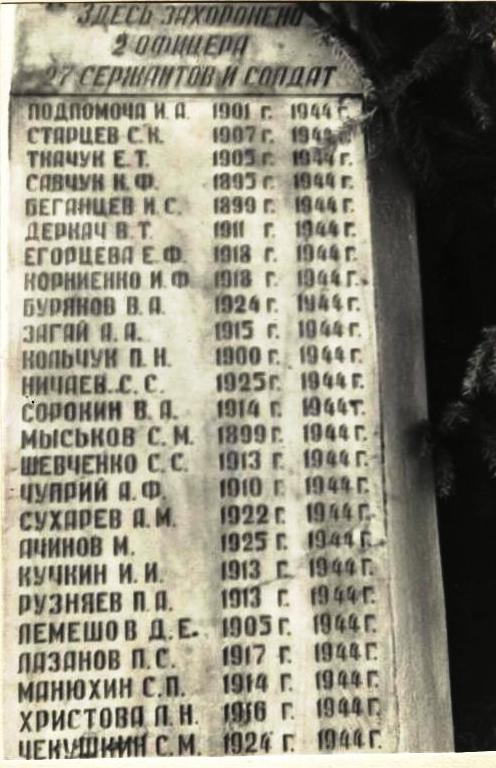 ЗДЕСЬ ЗАХОРОНЕНО
2 ОФИЦЕРА
27 СЕРЖАНТОВ И СОЛДАТ
ПОДПОМОЧА И. А. 1901 г. 1944 г.
СТАРЦЕВ С. К. 1907 г. 1944 г.
ТКАЧУК Е. Т. 1905 г. 1944 г.
САВЧУК К. Ф. 1895 г. 1944 г.
БЕГАНЦЕВ И. С. 1899 г. 1944 г.
ДЕРКАЧ В. Т. 1911 г. 1944 г.
ЕГОРЦЕВА Е. Ф. 1918 г. 1944 г.
КОРНИЕНКО И. Ф 1918 г. 1944 г.
БУРЯКОВ В. А. 1924 г. 1944 г.
ЗАГАЙ А. А. 1915 г. 1944 г.
КОЛЬЧУК П. Н. 1900 г. 1944 г.
НИЧАЕВ С. С. 1925 г. 1944 г.
СОРОКИН В. А. 1914 г. 1944 г.
МЫСЬКОВ С. М. 1899 г. 1944 г.
ШЕВЧЕНКО С. С. 1913 г. 1944 г.
ЧУПРИЙ А. Ф. 1910 г. 1944 г.
СУХАРЕВ А. М. 1922 г. 1944 г.
АЧИНОВ М. 1925 г. 1944 г.
КУЧКИН И. И. 1913 г. 1944 г.
РУЗНЯЕВ П. А. 1913 г. 1944 г.
ЛЕМЕШОВ Д. Е. 1905 г. 1944 г.
ЛАЗАНОВ П. С. 1917 г. 1944 г.
МАНЮХИН С. П. 1914 г. 1944 г.
ХРИСТОВА Л. Н. 1916 г. 1944 г.
ЧЕКУШКИН С. М. 1924 г. 1944 г.